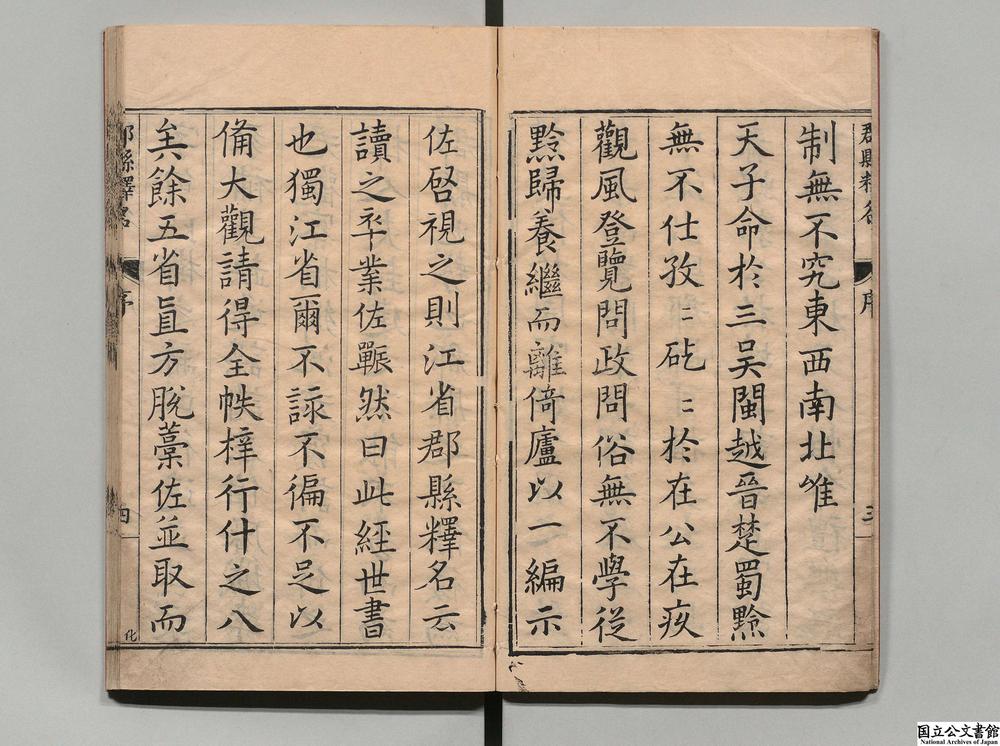 郡縣釋名
序
三
制無不究東西南北唯
天子命於三吳閩越晉楚蜀黔
無不仕孜〻矻〻於在公在疚
觀風登覽問政問俗無不學從
黔歸養繼而離倚廬以一編示
佐啓視之則江省郡縣釋名云
讀之卒業佐囅然曰此經世書
也獨江省爾不詠不徧不足以
備大觀請得全帙梓行什之八
矣餘五省直方脫藁佐並取而
郡縣釋名
序
四
化
国立公文書館
National Archives of Japan